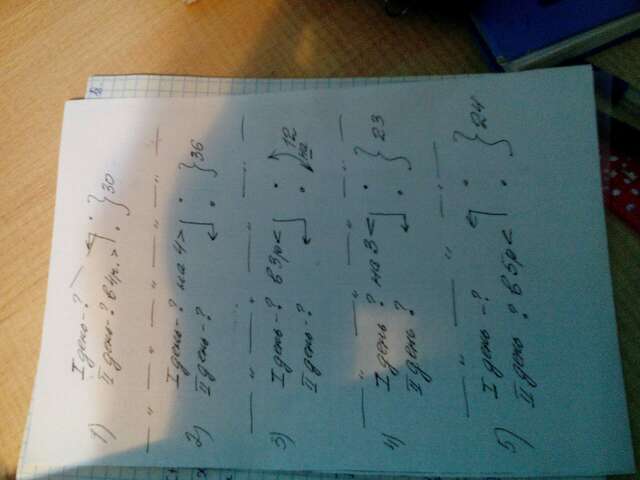 1) I день - ?
II день - ? в 4р. > } 30
— " — " — " — " —
2) I день - ? на 4 >
II день - ? } 36
— " — " — " — " —
3) I день - ? в 3р <
II день - ? } на 12
— " — " — " — " —
4) I день ? на 3 <
II день ? } 23
— " — " — " — " —
5) I день - ?
II день ? в 5р < } 24